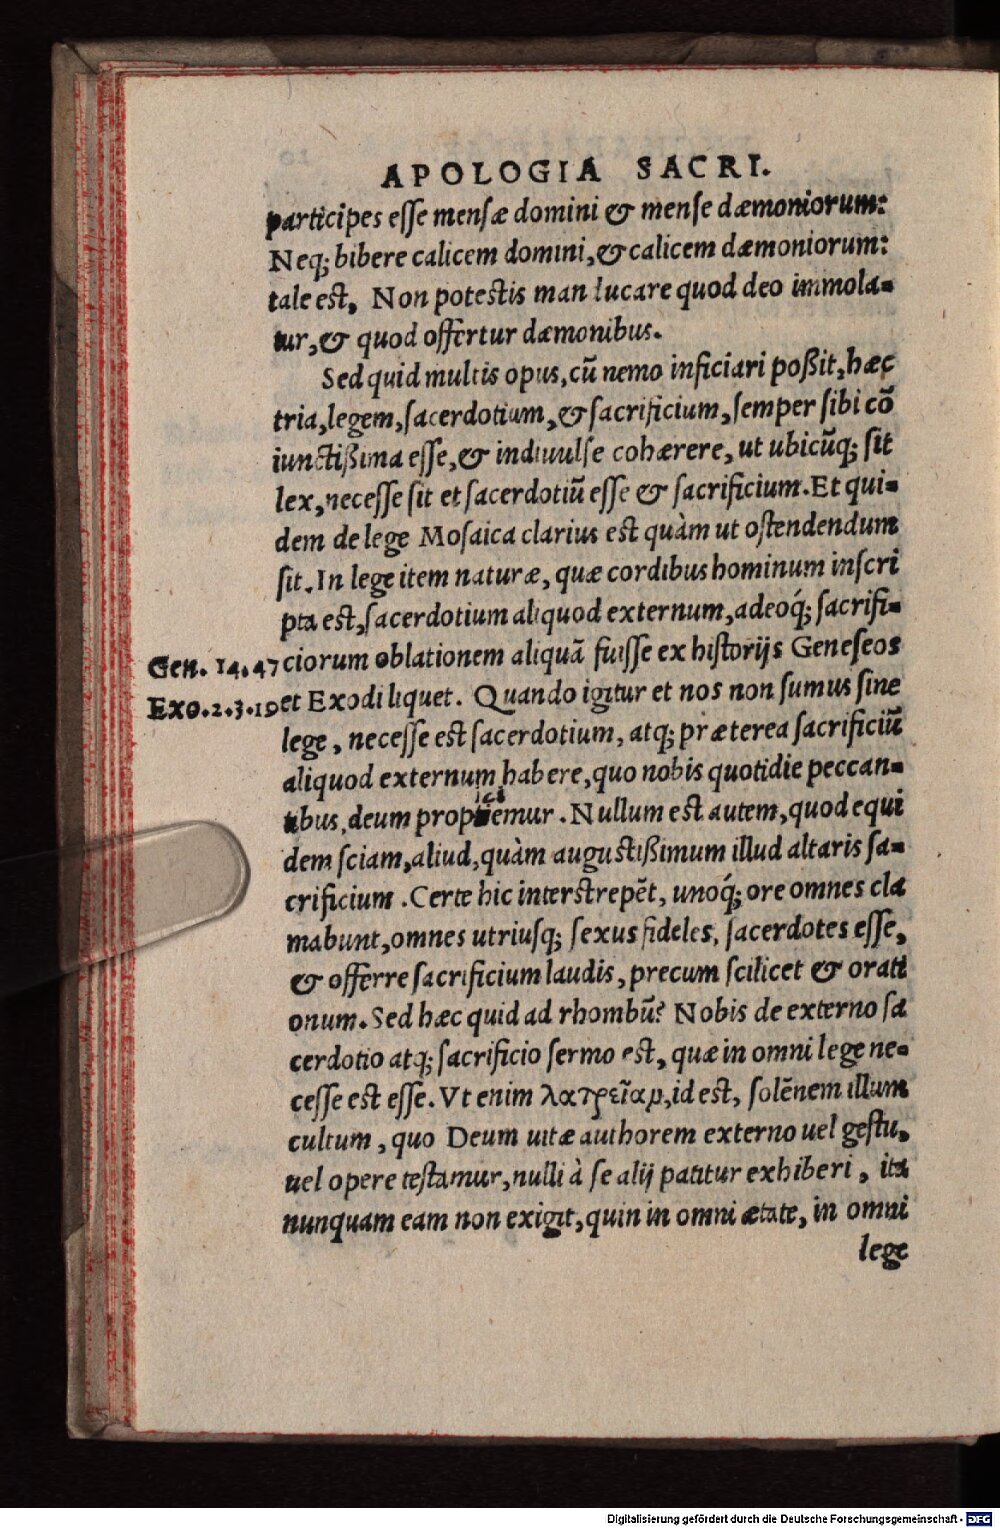 APOLOGIA SACRI.
participes esse mensæ domini & mense dæmoniorum:
Neq; bibere calicem domini, & calicem dæmoniorum:
tale est, Non potestis man ducare quod deo immola-
tur, & quod offertur dæmonibus.
Sed quid multis opus, cũ nemo inficiari poßit, hæc
tria, legem, sacerdotium, & sacrificium, semper sibi cõ
iunctißima esse, & indiuulse cohærere, ut ubicũq; sit
lex, necesse sit et sacerdotiũ esse & sacrificium. Et qui-
dem de lege Mosaica clarius est quàm ut ostendendum
sit. In lege item naturæ, quæ cordibus hominum inscri
pta est, sacerdotium aliquod externum, adeoq́; sacrifi-
Gen. 14.47 ciorum oblationem aliquã fuisse ex historijs Geneseos
Exo. 2.3.19 et Exodi liquet. Quando igitur et nos non sumus sine
lege, necesse est sacerdotium, atq; præterea sacrificiũ
aliquod externum habere, quo nobis quotidie peccan-
tibus, deum propitiemur. Nullum est autem, quod equi
dem sciam, aliud, quàm augustißimum illud altaris sa-
crificium. Certe hic interstrepẽt, unoq́; ore omnes cla
mabunt, omnes utriusq; sexus fideles, sacerdotes esse,
& offerre sacrificium laudis, precum scilicet & orati
onum. Sed hæc quid ad rhombũ? Nobis de externo sa
cerdotio atq; sacrificio sermo est, quæ in omni lege ne-
cesse est esse. Vt enim λατρείαν, id est, solẽnem illum
cultum, quo Deum uitæ authorem externo uel gestu,
uel opere testamur, nulli à se alij patitur exhiberi, ita
nunquam eam non exigit, quin in omni ætate, in omni
lege
Digitalisierung gefördert durch die Deutsche Forschungsgemeinschaft - DFG